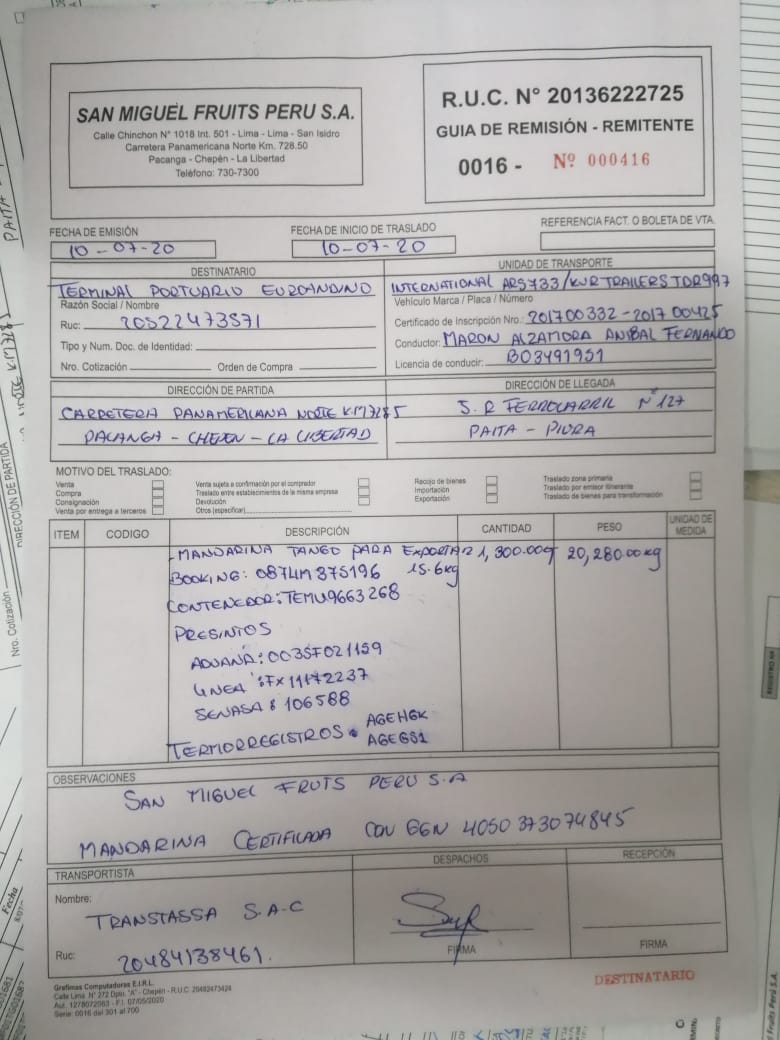 SAN MIGUEL FRUITS PERU S.A.
Calle Chinchon N° 1018 Int. 501 - Lima - Lima - San Isidro
Carretera Panamericana Norte Km. 728.50
Pacanga - Chepén - La Libertad
Teléfono: 730-7300
R.U.C. N° 20136222725
GUIA DE REMISIÓN - REMITENTE
0016 - Nº 000416
FECHA DE EMISIÓN
10-07-20
FECHA DE INICIO DE TRASLADO
10-07-20
REFERENCIA FACT. O BOLETA DE VTA.
DESTINATARIO
TERMINAL PORTUARIO EUROANDINO
Razón Social / Nombre
Ruc: 20522473571
Tipo y Num. Doc. de Identidad:
Nro. Cotización Orden de Compra
UNIDAD DE TRANSPORTE
INTERNATIONAL ARS733/KURTRAILERS TDR997
Vehículo Marca / Placa / Número
Certificado de Inscripción Nro.: 201700332-201700425
Conductor: MARON ALZAMORA ANIBAL FERNANDO
Licencia de conducir: B03491951
DIRECCIÓN DE PARTIDA
CARRETERA PANAMERICANA NORTE KM 7285
PACANGA - CHEPEN - LA LIBERTAD
DIRECCIÓN DE LLEGADA
J.R FERROCARRIL Nº 127
PAITA - PIURA
MOTIVO DEL TRASLADO:
Venta
Compra
Consignación
Venta por entrega a terceros
Venta sujeta a confirmación por el comprador
Traslado entre establecimientos de la misma empresa
Devolución
Otros (especificar)
Recojo de bienes
Importación
Exportación
Traslado zona primaria
Traslado por emisor itinerante
Traslado de bienes para transformación
ITEM CODIGO DESCRIPCIÓN CANTIDAD PESO UNIDAD DE MEDIDA
-MANDARINA TANGO PARA EXPORTAR 1,300.00 20,280.00kg
BOOKING: 0874M875196 15.6kg
CONTENEDOR: TEMU9663268
PRESINTOS
ADUANA: 0035F021159
LINEA: FX11172237
SENASA: 106588
TERMORREGISTROS: AGEHGK
AGEGS1
OBSERVACIONES
SAN MIGUEL FRUTS PERU S.A
MANDARINA CERTIFICADA CON GGN 4050373074845
TRANSPORTISTA
Nombre: TRANSTASSA S.A.C
Ruc: 20484138461.
DESPACHOS
FIRMA
RECEPCIÓN
FIRMA
Grafimas Computadoras E.I.R.L.
Calle Lima N° 272 Dpto. "A" - Chepén - R.U.C. 20482473424
Aut. 1278072063 - F.I. 07/05/2020
Serie: 0016 del 301 al 700
DESTINATARIO